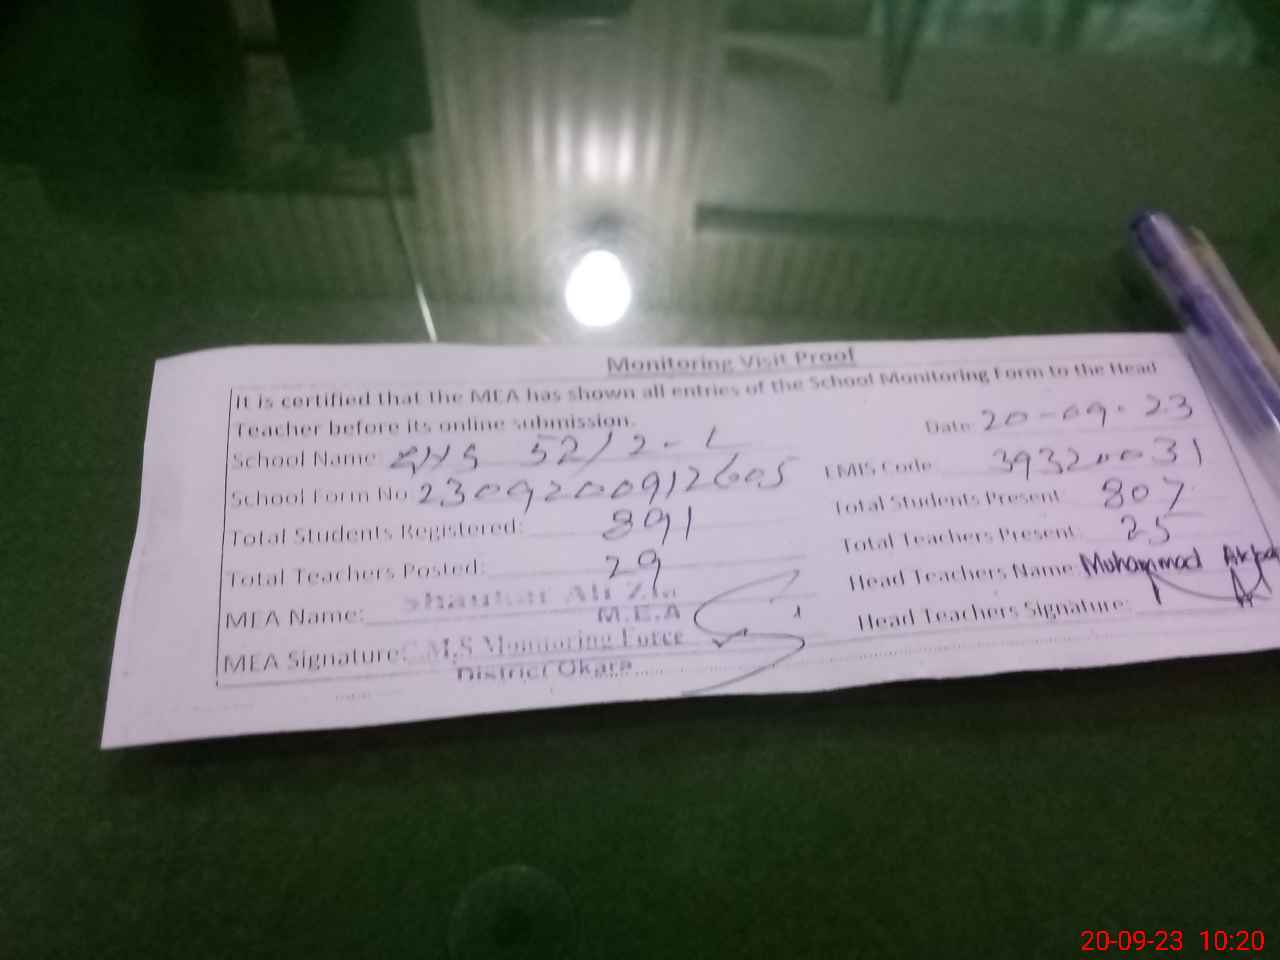 Monitoring Visit Proof
It is certified that the MEA has shown all entries of the School Monitoring Form to the Head
Teacher before its online submission.
Date 20-09-23
School Name: GHS 52/2-L
EMIS Code 39320031
School Form No 2309200912605
Total Students Present 807
Total Students Registered: 891
Total Teachers Present: 25
Total Teachers Posted: 29
Head Teachers Name: Muhammad
MEA Name: Shaukat Ali Zia
M.E.A
Head Teachers Signature:
MEA Signature: C.M.S Monitoring Force
District Okara
20-09-23 10:20